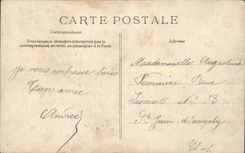 CARTE POSTALE
Correspondance
Tous les pays étrangers n'acceptent pas la
correspondance au recto, se renseigner à la Poste
Adresse
je vous embrasse tous
Ton amie
Andrée
Mademoiselle Augustine
Rue
N° 13
St Jean d'angely